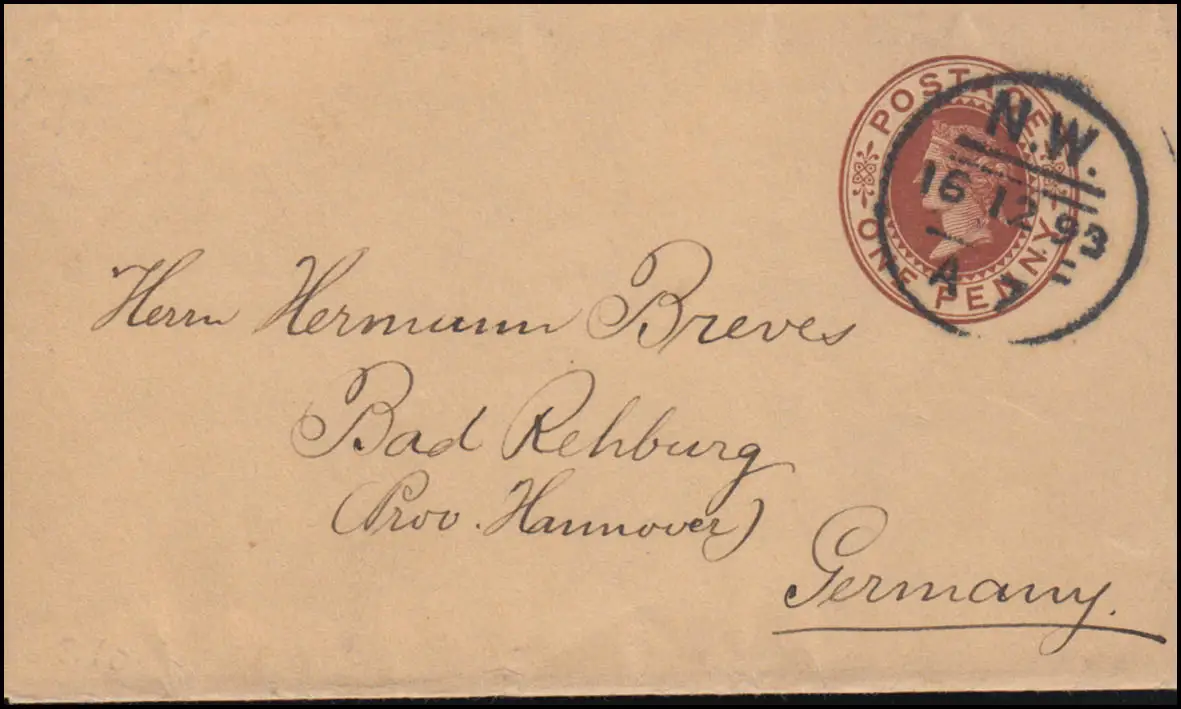 POSTAGE
ONE PENNY
N.W.
16 12 93
A
Herrn Hermann Breves
Bad Rehburg
(Prov. Hannover)
Germany.